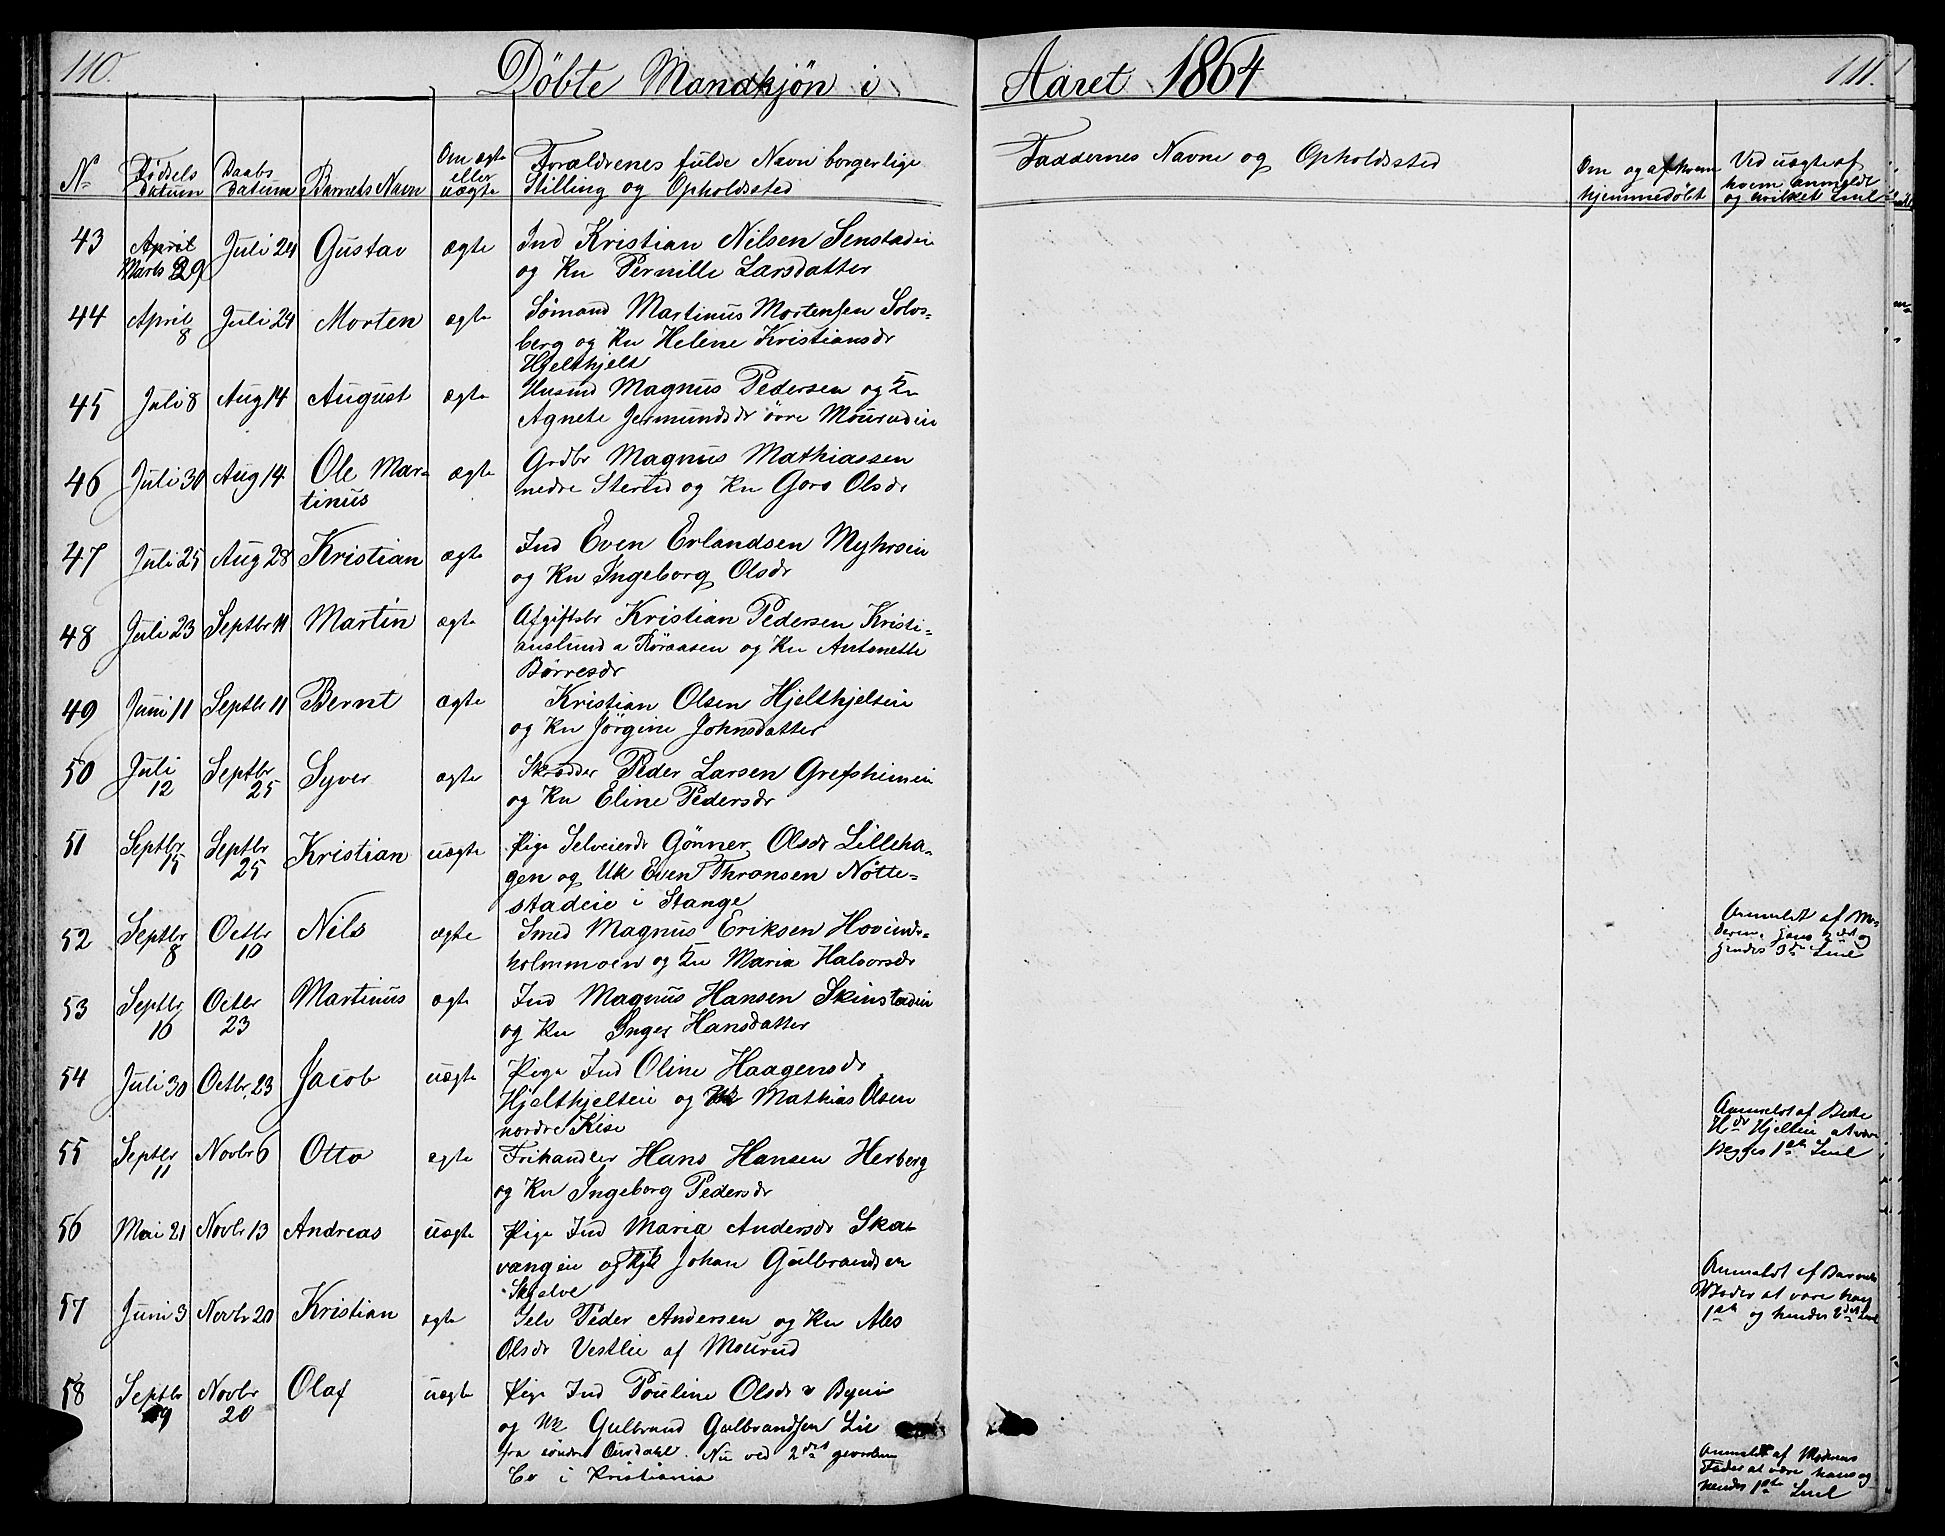 110.
Döbte Mandkjön i
Aaret 1864
111.
N. Födsels datum Daabs datum Barnets Navn Om ægte eller uægte Forældrenes fulde Navn borgerlige Stilling og Opholdssted
Faddernes Navne og Opholdssted
Om og af hvem hjemmedöbt
Ved uægte af hvem anmeldt og hvilket Leil
43 April Marts 29 Juli 24 Gustav ægte Ind Kristian Nilsen Senstadei
og Ku Pernille Larsdatter
44 April 8 Juli 24 Morten ægte Sømand Martinus Mortensen Solos=
berg og Ku Helene Kristiansdr
Hjelthjelt
45 Juli 8 Aug 14 August ægte Husmd Magnus Pedersen og Ku
Agnete Jermundsdr övre Mourudei
46 Juli 30 Aug 14 Ole Mar= ægte Grdbr Magnus Mathiassen
tinus nedre Stertid og Ku Goro Olsdr
47 Juli 25 Aug 28 Kristian ægte Ind Even Erlandsen Myhrsei
og Ku Ingeborg Olsdr
48 Juli 23 Septbr 11 Martin ægte Afgiftsbr Kristian Pedersen Kristi=
anslund a Röraasen og Ku Antonette
Börresdr
49 Juni 11 Septbr 11 Bernt ægte Kristian Olsen Hjelthjeltei
og Ku Jörgine Johnsdatter
50 Juli 12 Septbr 25 Syver ægte Skrædder Peder Larsen Grefsheimei
og Ku Eline Pedersdr
51 Septbr 15 Septbr 25 Kristian uægte Pige Selveierdr Gönner Olsdr Lilleha=
gen og Uk Even Thronsen Nötte=
stadeie i Stange
52 Septbr 8 Octbr 10 Nils ægte Smed Magnus Eriksen Hovinds=
holmmoen og Ku Maria Halvorsdr
Anmeldt af Mo=
deren, hans 2det og
hendes 3die Leil
53 Septbr 16 Octbr 23 Martinus ægte Ind Magnus Hansen Skinstadei
og Ku Inger Hansdatter
54 Juli 30 Octbr 23 Jacob uægte Pige Ind Oline Haagensdr
Hjelthjeltei og Uk Mathias Olsen
nordre Kise
55 Septbr 11 Novbr 6 Otto ægte Frihandler Hans Hansen Herberg
og Ku Ingeborg Pedersdr
Anmeldt af
Hjeltei at være
Begges 1ste Leil
56 Mai 21 Novbr 13 Andreas uægte Pige Ind Maria Andersdr Ska=
vangei og Johan Gulbrandsen
Skjelve
57 Juni 3 Novbr 20 Kristian ægte Selv Peder Andersen og Ku Ales
Olsdr Vestlie af Mourud
Anmeldt af Barnets
Moder at være hans
1ste og hendes 2det Leil
58 Septbr 9 Novbr 20 Olaf uægte Pige Ind Pouline Olsdr Byei
og Uk Gulbrand Gulbrandsen Lie
fra söndre Ourdahl. Nu ved 2det
i Kristiania
Anmeldt af Moderens
Fader at være hans og
hendes 1ste Leil